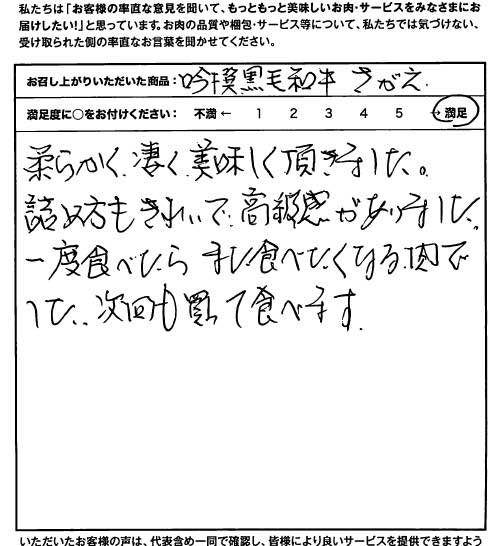 私たちは「お客様の率直な意見を聞いて、もっともっと美味しいお肉・サービスをみなさまにお
届けしたい!」と思っています。お肉の品質や梱包・サービス等について、私たちでは気づけない、
受け取られた側の率直なお言葉を聞かせてください。
お召し上がりいただいた商品：吟撰黒毛和牛 さがえ
満足度に○をお付けください： 不満 ← 1 2 3 4 5 → 満足
柔らかく、凄く美味しく頂きました。
詰め方もきれいで、高級感がありました。
一度食べたら また食べたくなる肉で
した。次回も買って食べます。
いただいたお客様の声は、代表含め一同で確認し、皆様により良いサービスを提供できますよう